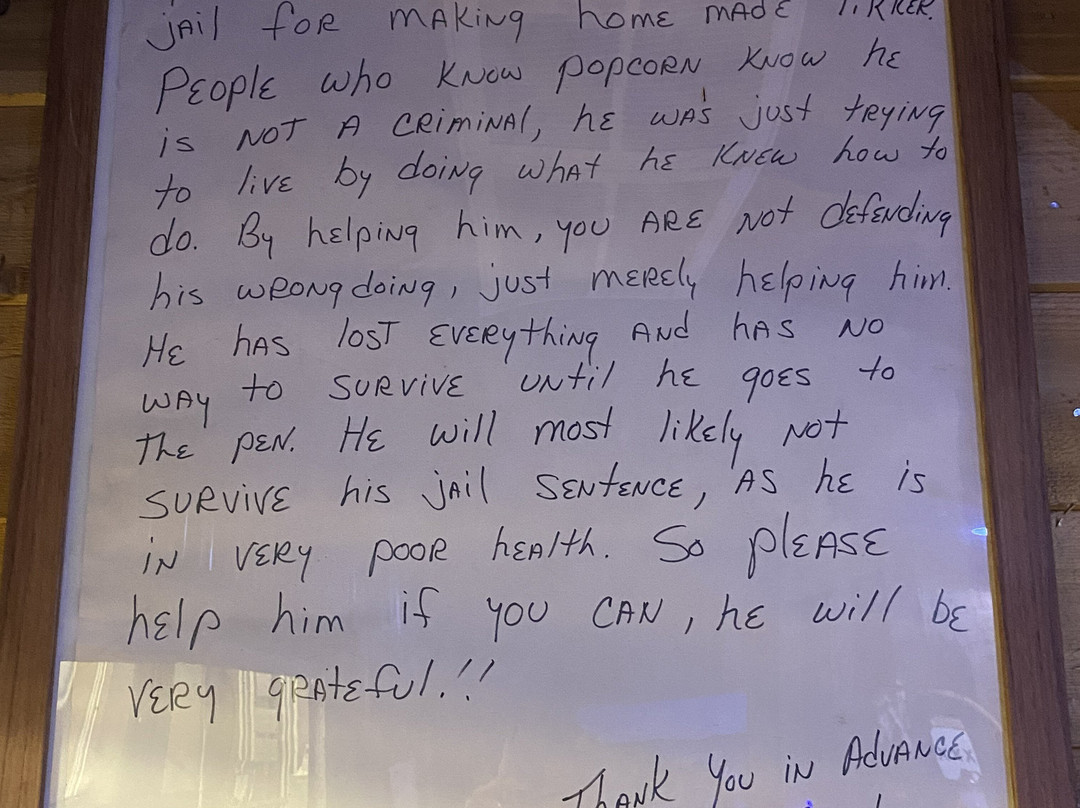 jail for making home made
People who know popcorn know he
is not a criminal, he was just trying
to live by doing what he knew how to
do. By helping him, you are not defending
his wrongdoing, just merely helping him.
He has lost everything and has no
way to survive until he goes to
the pen. He will most likely not
survive his jail sentence, as he is
in very poor health. So please
help him if you can, he will be
very grateful.!!
Thank you in advance